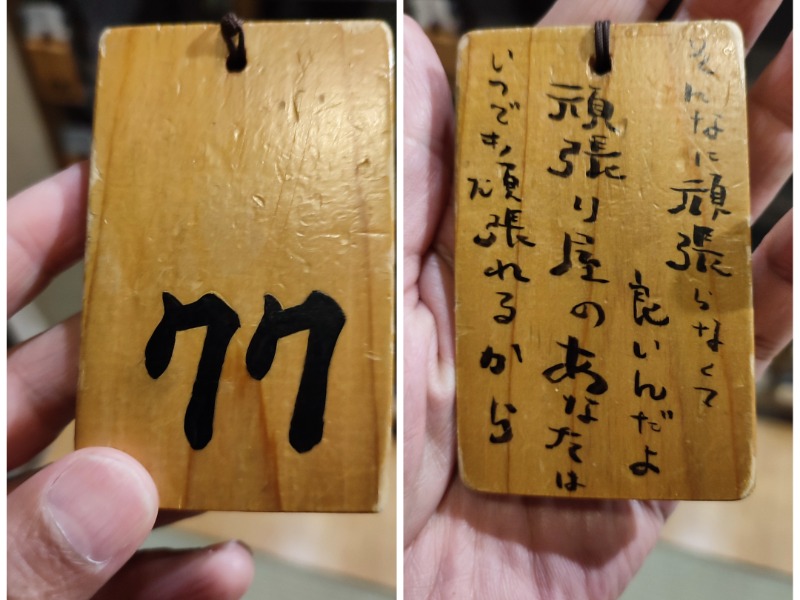 77
そんなに頑張らなくて
良いんだよ
頑張り屋のあなたは
いつでも頑張れるから